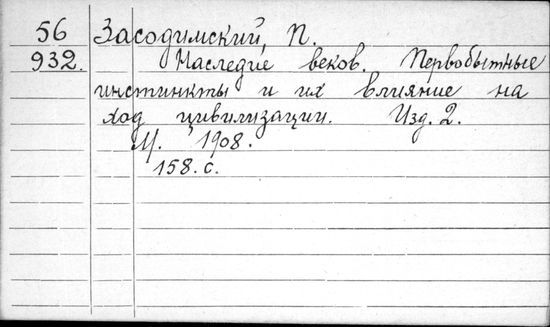 56 Засодимский, П.
932. Наследие веков. Первобытные
инстинкты и их влияние на
ход цивилизации. Изд. 2.
М. 1908.
158. с.